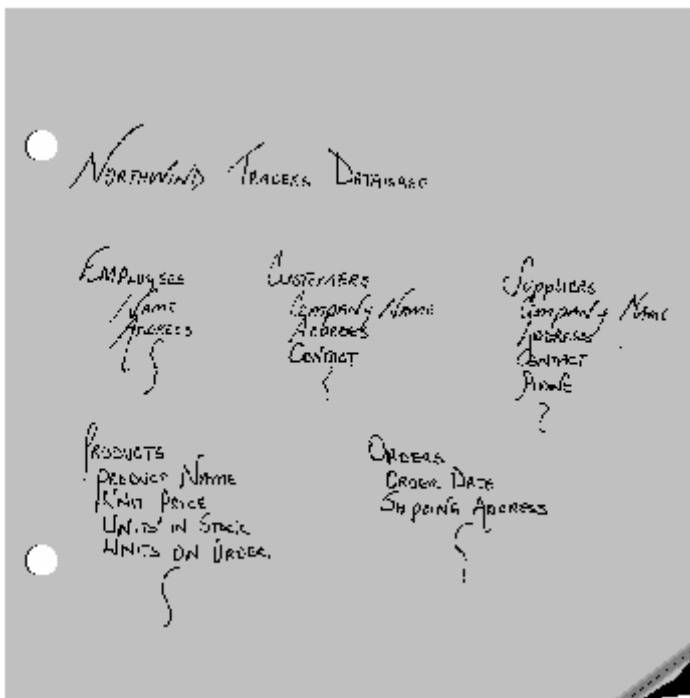 NORTHWIND TRADERS DATABASE
EMPLOYEES
NAME
ADDRESS
CUSTOMERS
COMPANY NAME
ADDRESS
CONTACT
SUPPLIERS
COMPANY NAME
ADDRESS
CONTACT
PHONE
?
PRODUCTS
PRODUCT NAME
UNIT PRICE
UNITS IN STOCK
UNITS ON ORDER
ORDERS
ORDER DATE
SHIPPING ADDRESS